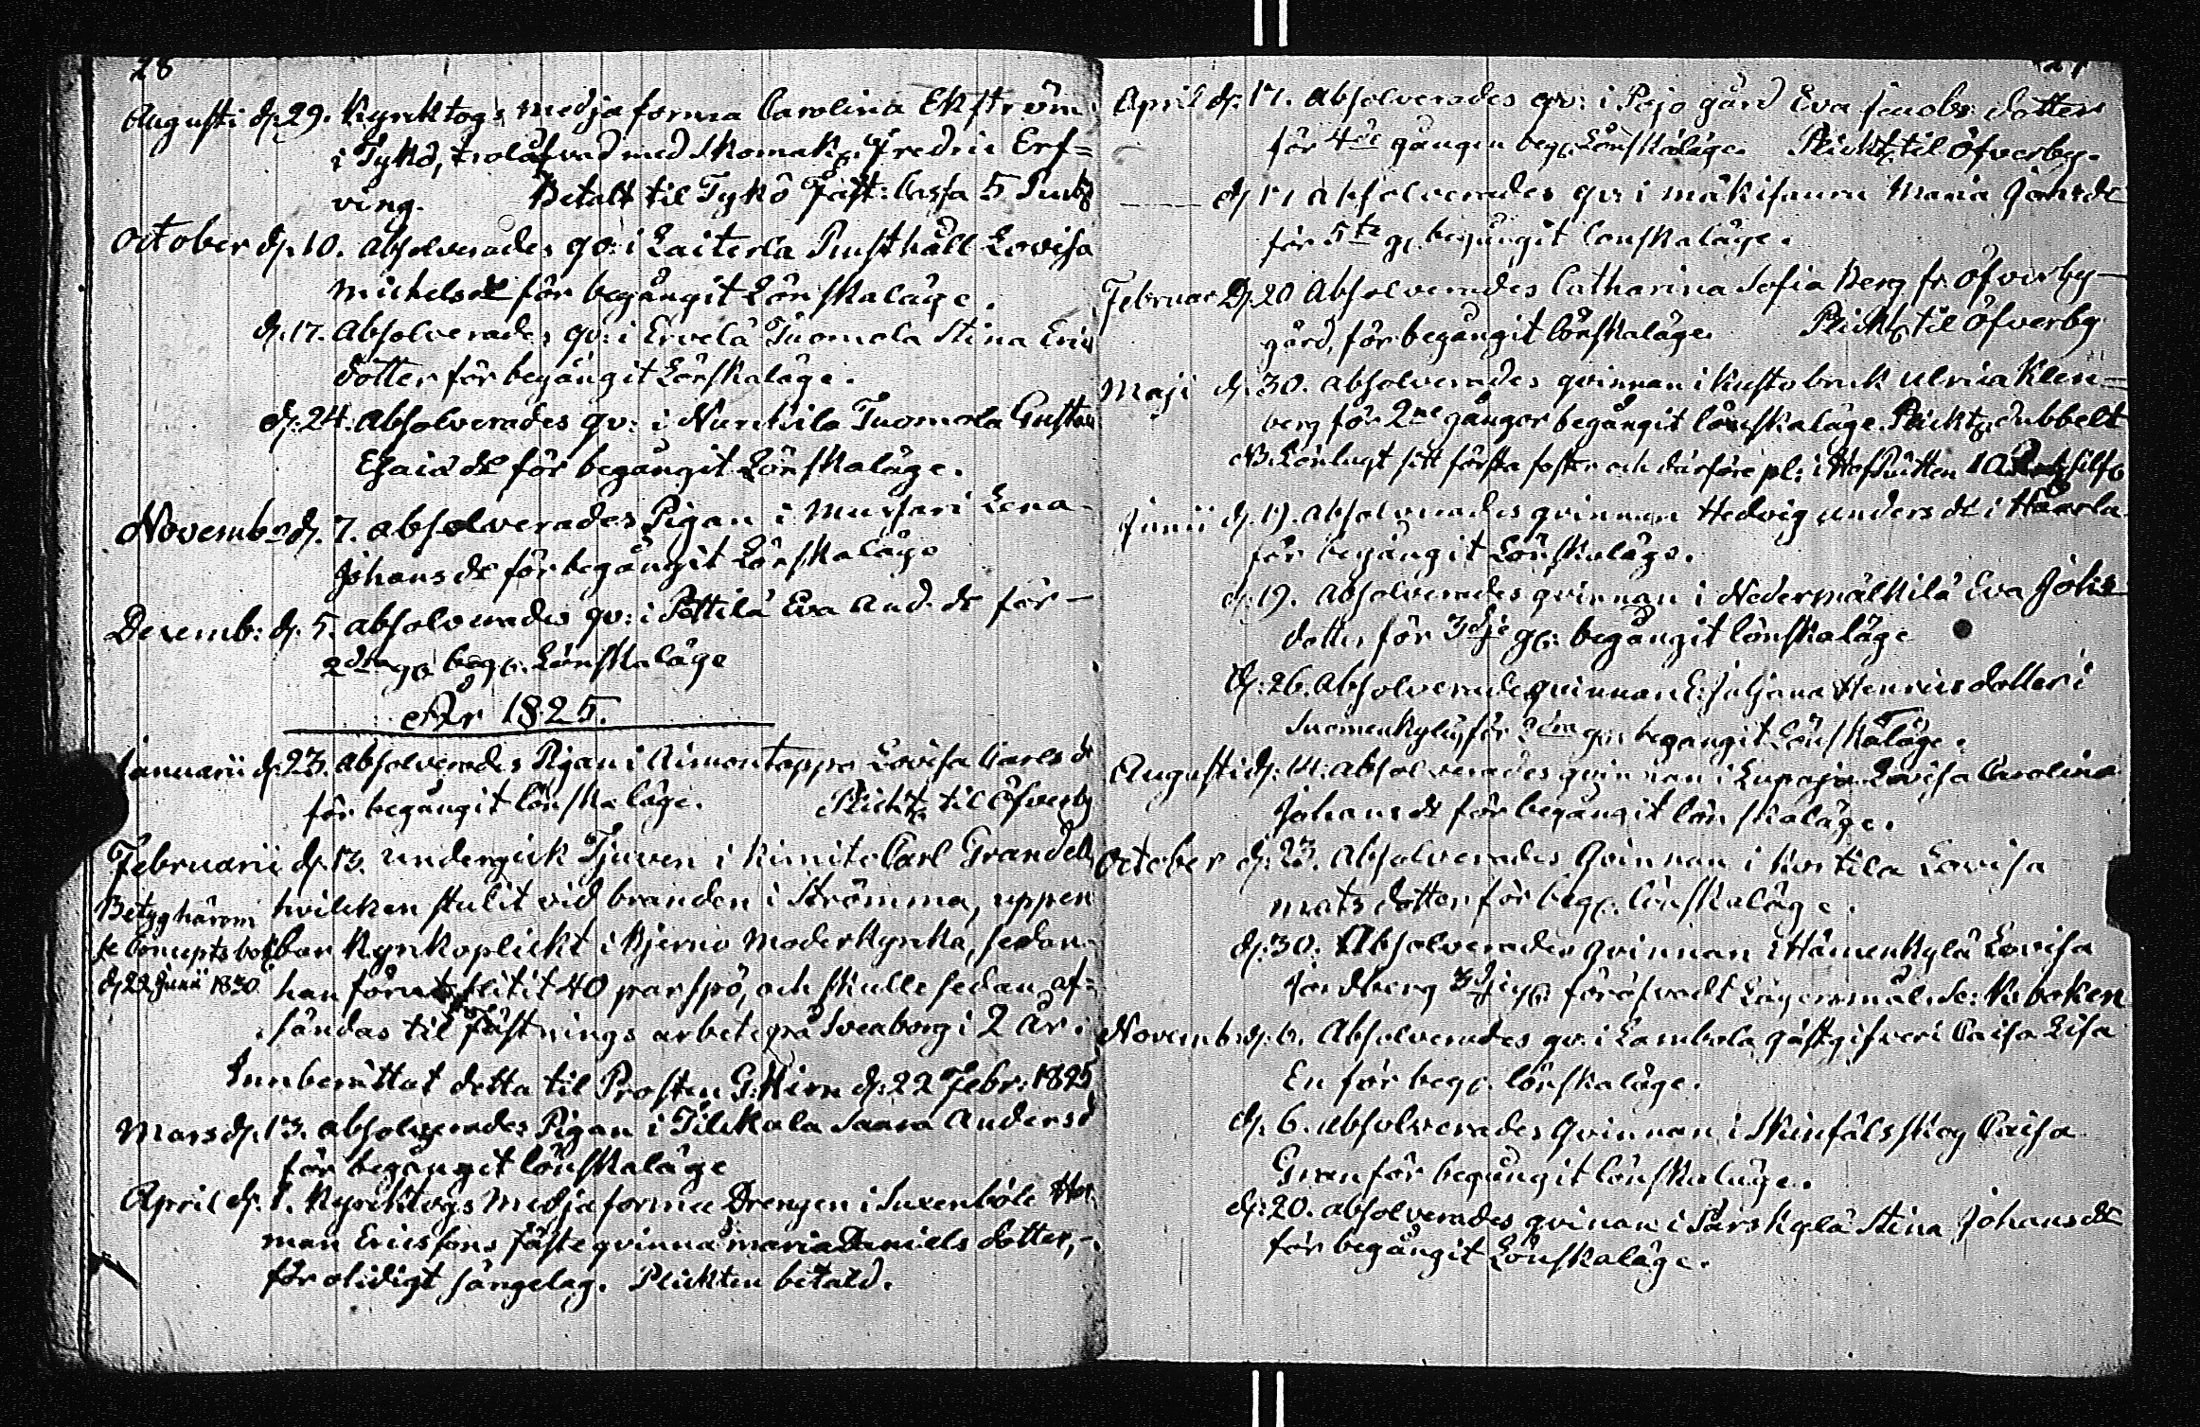 28
Augusti d. 29. Kyrktogs medja formia Carolina Ekström
i Tykö, trolofvad med Skomak. Fredric Erf=
ving. Betalt til Tykö Fatt: Cassa 5
October d. 10. absolverades qv: i Laiterla Lovisa
Michelsdr för begångit Lönskaläge.
d. 17. Absolverades qv: i Ervelä Tuomola Stina Eric
dotter för begångit Lönskaläge.
d. 24. Absolverades qv: i Nurkkila Tuomola Gustava
Esaiædr för begångit Lönskaläge.
Novembr d. 7. absolverades Pigan i Mussari Lena
Johansdr för begångit Lönskaläge
Decemb: d. 5. absolverades qv: i Pettilä Eva And. dr för
2dra gg. begg. Lönskaläge
År 1825.
Januarii d. 23. absolverades Pigan i Aimontappa Lovisa Carlsdr
för begångit lönskaläge. Plickt. til Öfverby
Februarii d. 13. undergick Tjuven i Kimito Carl Grandell
hvilcken stulit vid branden i Strömma, uppen
Betyg härom
bar Kyrkoplickt i Kjerno Moderkyrka, sedan
se Conceptsbok
d. 22 Junii 1830
han förut slitit 40 par spö, och skulle sedan af=
sändas til Fästnings arbete på Sveaborg i 2 år.
Innberättat detta til Prosten G: Hirn d. 22 Febr: 1825
Mars d. 13. absolverades Pigan i Tilkala Saara Andersd
för begångit lönskaläge
April d. 1. Kyrcktogs Medja formia Drengen i Suxenböle Her
man Ericssons Fästeqvinna Maria Daniels dotter,
för otidigt sängelag. Plickten betald.
April d. 17. absolverades qv: i Pojo gård Eva Jacobs dotter
för 4de gången beg. Lönskaläge. Plickt. til Öfverby.
d. 17 absolverades qv: i Mäkisauru Maria
för 5te g. begångit lönskaläge.
Februar d. 20 Absolverades Catharina Sofia Berg fr. Öfverby
gård, för begångit lönskaläge. Plickt. til Öfverby
Maji d. 30. absolverades qvinnan i Kustobruk Ulrica Klen=
berg för 2ne gånger begångit lönskaläge. Plickt. dubbelt
NB. Lönlagt sitt första foster och därföre pl: i HofRätten 10
Junii d. 19. absolverades qvinnan Hedvig Andersdr i Haarla
för begångit Lönskaläge.
d. 19. absolverades qvinnan i Nedermälkilä Eva Johs
dotter för 3dje gg: begångit lönskaläge
d. 26. Absolverades qvinnan E: Juljana Henrics dotter i
Suomenkylä, för 2dra gg. begångit Lönskaläge.
Augusti d. 14. absolverades qvinnan i Lupaja Lovisa Carolina
Johansdr för begångit lönskaläge.
October d. 23. Absolverades Qvinnan i Lovisa
Matsdotter för begg. lönskaläge.
d. 30. Absolverades qvinnan i Hämenkylä Lovisa
Jordberg 3dje gg. föröfvadt Lägersmål. Se: K. boken
Novemb: d. 6. Absolverades qv: i Lambola gästgifveri Caisa Lisa
En för begg. lönskaläge.
d. 6. absolverades Qvinnan i Skinfälsskog Caisa
Gran för begångit lönskaläge.
d. 20. absolverades qvinan i Pärskylä Stina Johansdr
för begångit Lönskaläge.